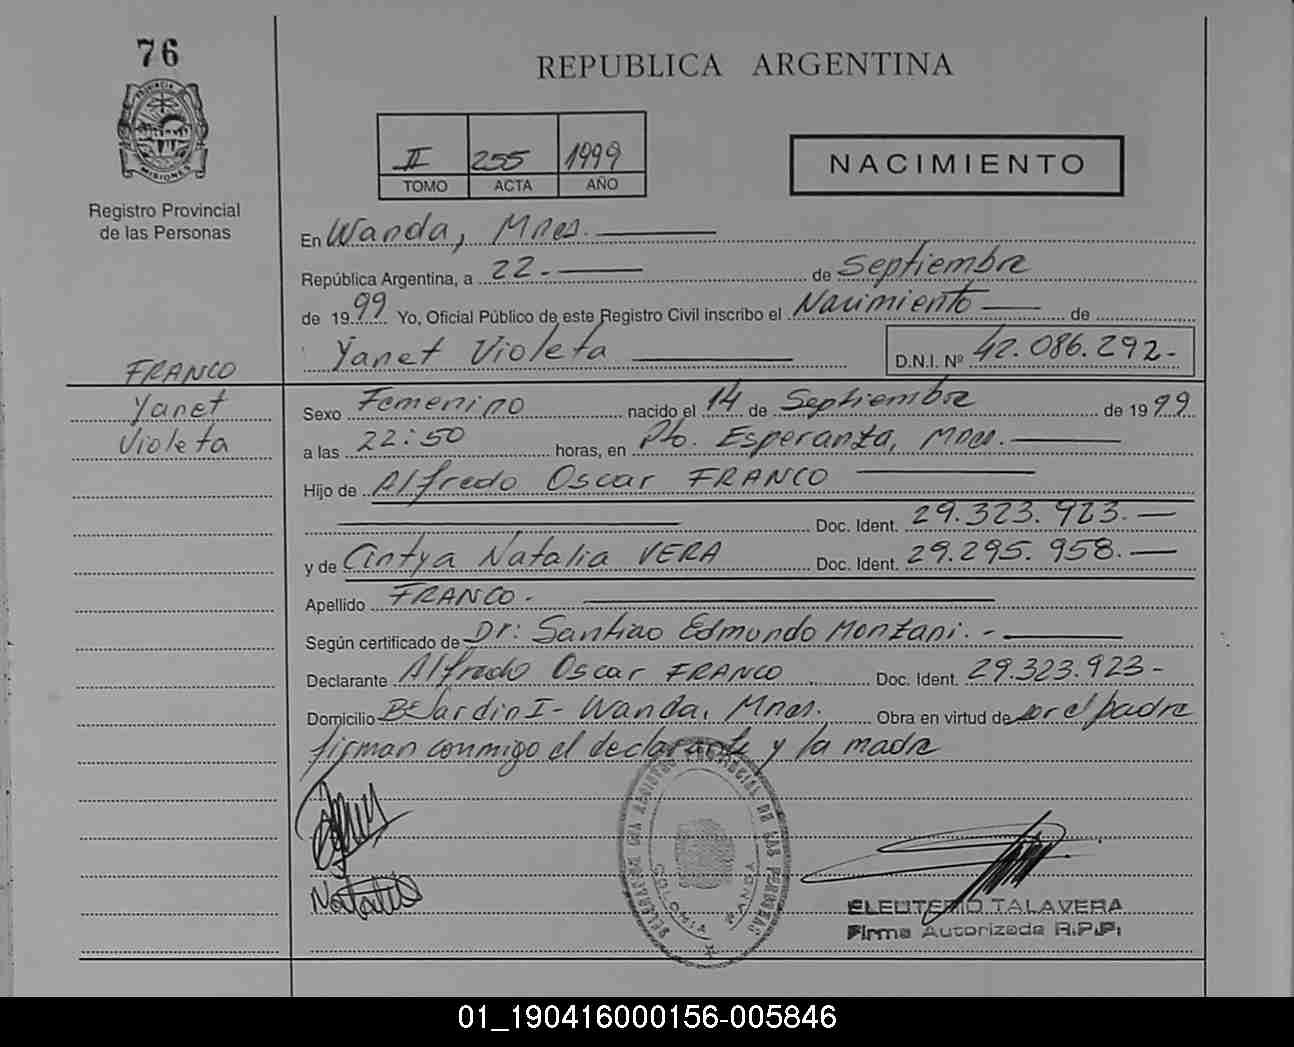 76
PROVINCIA
MISIONES
Registro Provincial
de las Personas
REPUBLICA ARGENTINA
II 255 1999
TOMO ACTA AÑO
NACIMIENTO
En Wanda, Mnes.
República Argentina, a 22.- de Septiembre
de 1999 Yo, Oficial Público de este Registro Civil inscribo el Nacimiento de
Yanet Violeta D.N.I. Nº 42.086.292-
FRANCO
Yanet
Violeta
Sexo Femenino nacido el 14 de Septiembre de 1999
a las 22:50 horas, en Pto. Esperanza, Mnes.
Hijo de Alfredo Oscar FRANCO
Doc. Ident. 29.323.923.-
y de Cintya Natalia VERA Doc. Ident. 29.295.958.-
Apellido FRANCO.-
Según certificado de Dr: Santiao Edmundo Monzani.-
Declarante Alfredo Oscar FRANCO Doc. Ident. 29.323.923-
Domicilio Bº Jardin I- Wanda, Mnes. Obra en virtud de ser el padre
firman conmigo el declarante y la madre
Natalia
REGISTRO PROVINCIAL DE LAS PERSONAS
COLONIA WANDA
ELEUTERIO TALAVERA
Firma Autorizada R.P.P.
01_190416000156-005846